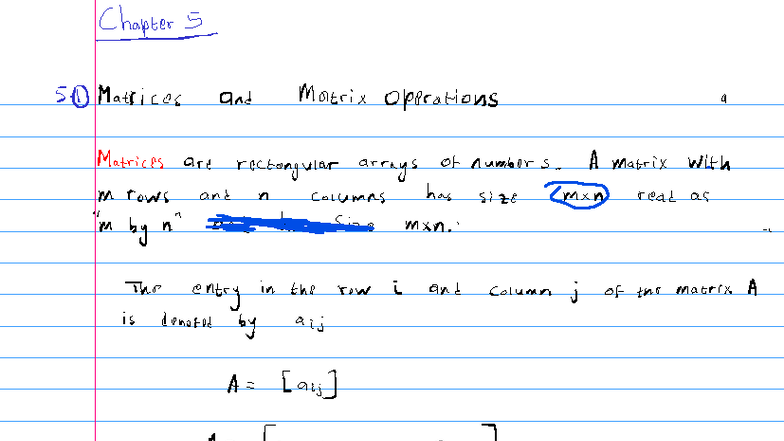 Chapter 5
5.1 Matrices and Matrix Operations
Matrices are rectangular arrays of numbers. A matrix with
m rows and n columns has size m×n read as
"m by n" m×n.
The entry in the row i and column j of the matrix A
is denoted by aij
A = [aij]